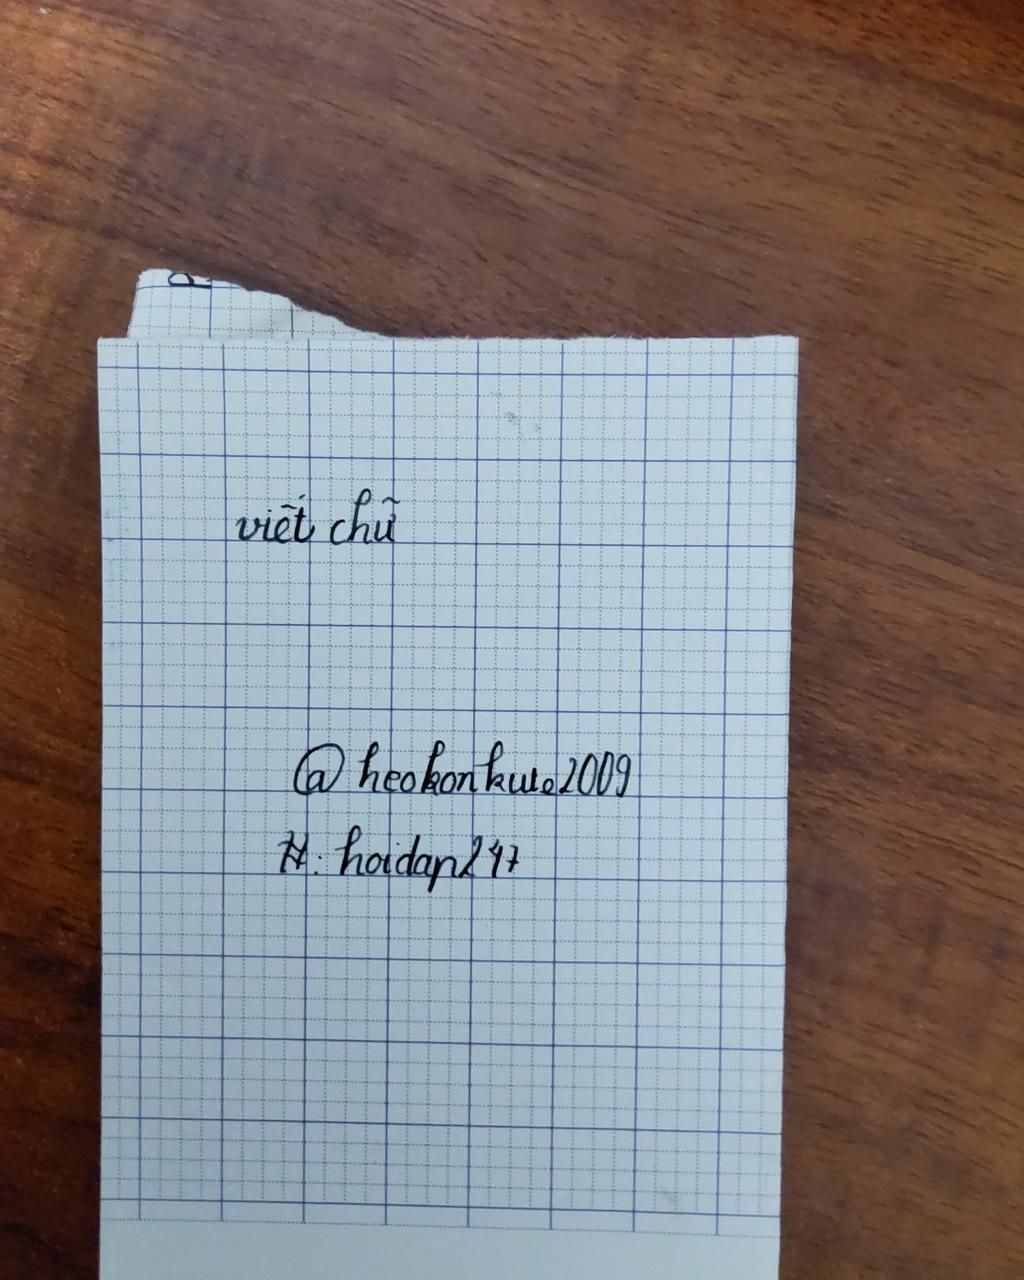 viết chữ
@heokonkute2009
#: hoidap247